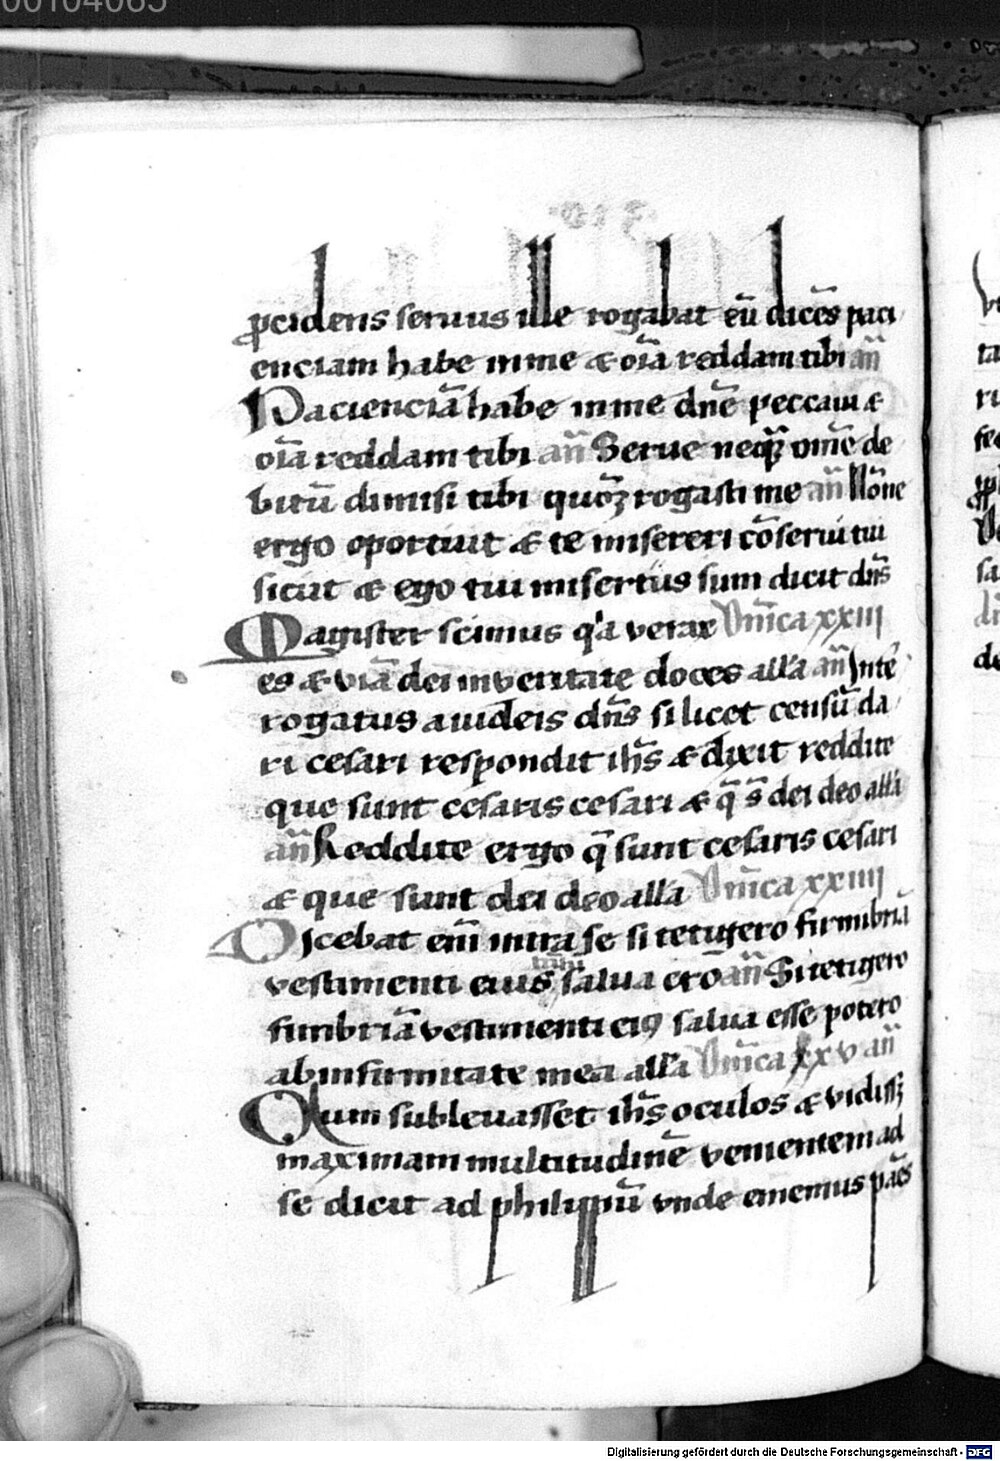 00104065
ꝓcidens seruus ille rogabat eū dicēs paci
enciam habe in me & oīa reddam tibi an̄
Paciēciā habe in me dn̄e peccaui &
oīa reddam tibi an̄ Serue neq̄ꝫ om̄e de
bitū dimisi tibi quōꝫ rogasti me an̄ Nōne
ergo oportuit & te misereri cōserui tui
sicut & ego tui misertus sum dicit dn̄s
Magister scimus q'a verax Dn̄ica xxiii
es & viā dei in veritate doces all'a an̄ Inte
rogatus a iudeis dn̄s si licet censū da
ri cesari respondit ih̄s & dixit reddite
que sunt cesaris cesari & q̄ s̄ dei deo all'a
an̄ Reddite ergo q̄ sunt cesaris cesari
& que sunt dei deo alla Dn̄ica xxiiii
Dicebat em̄ intra se si tetigero fimbriā
vestimenti eius salua erō an̄ Si tetigero
fimbriā vestimenti eiꝰ salua esse potero
ab infirmitate mea all'a Dn̄ica xxv an̄
Cum subleuasset ih̄s oculos & vidissꝫ
maximam multitudinē venientem ad
se dicit ad philippū vnde ememus pāes
Digitalisierung gefördert durch die Deutsche Forschungsgemeinschaft - DFG